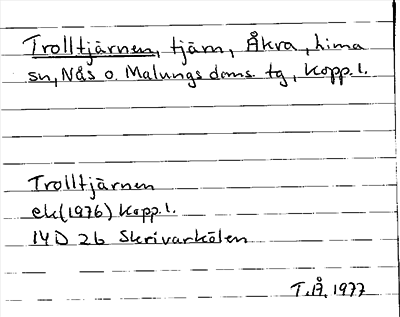 Trolltjärnen, tjärn, Åkra, Lima
sn, Nås o. Malungs doms. tg, Kopp.l.
Trolltjärnen
ek(1976) Kopp.l.
14D 2b Skrivarkölen
T.Å. 1977